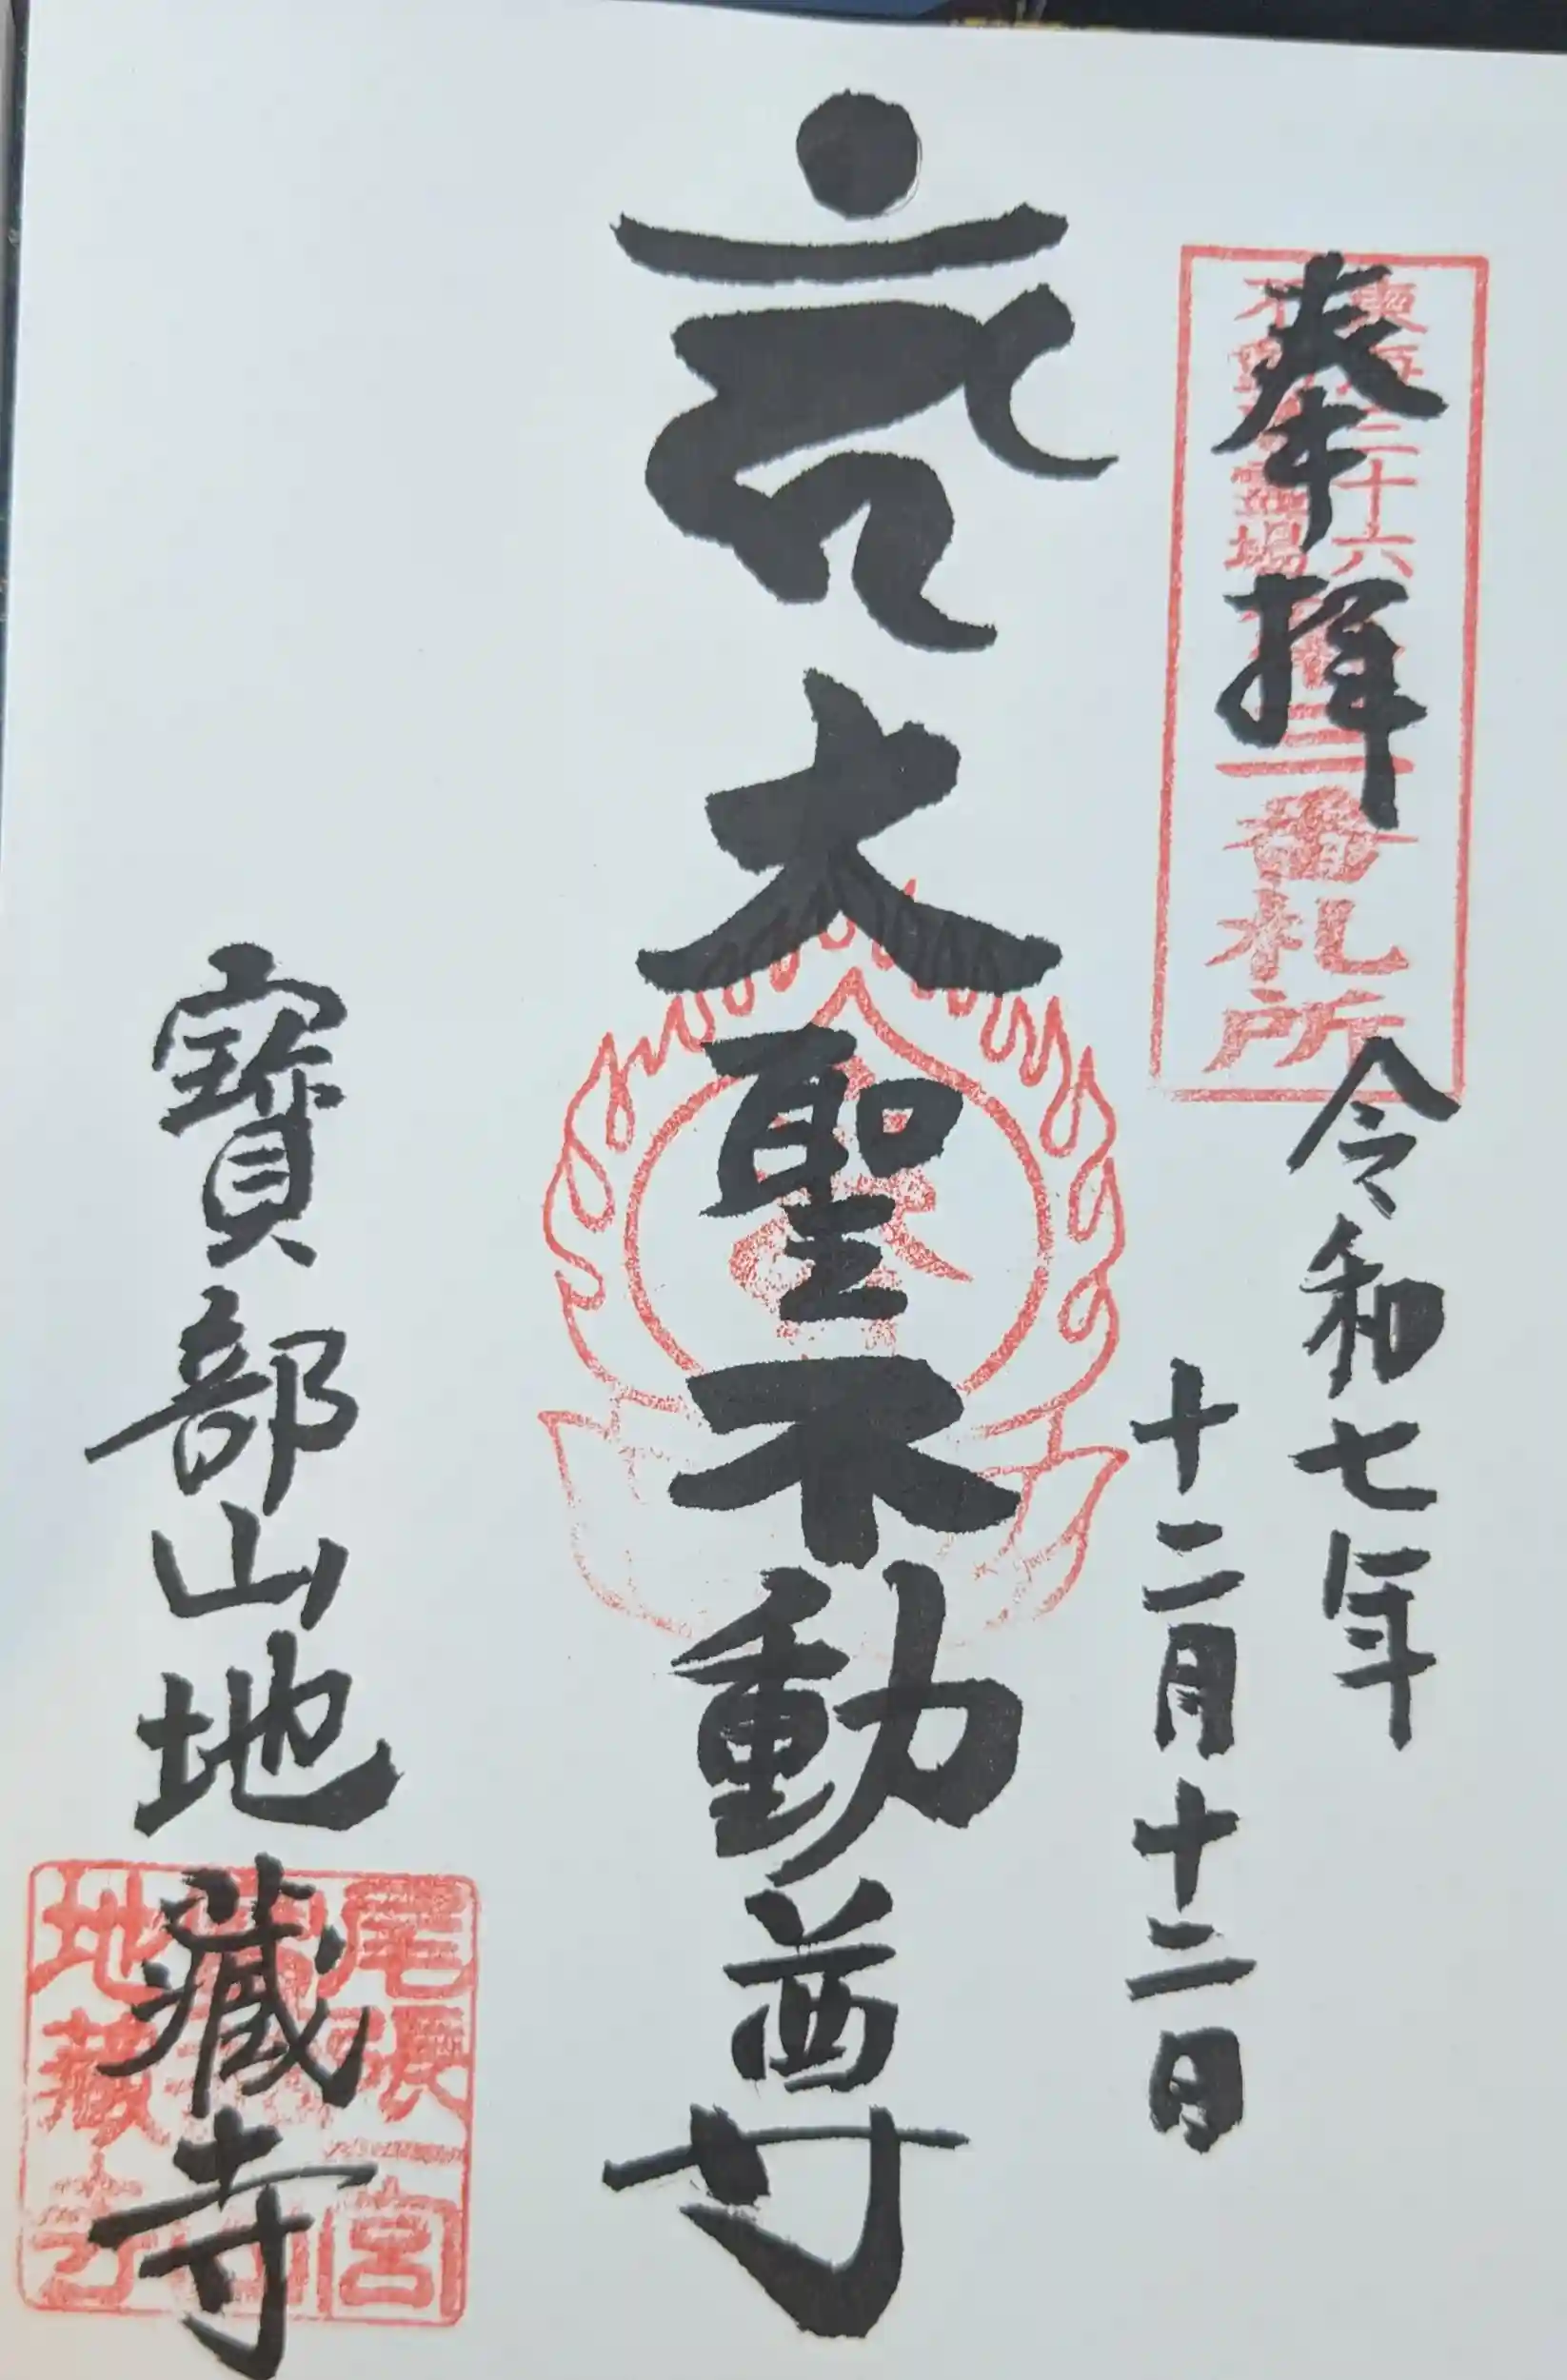 奉拝
東海三十六
不動尊霊場
番札所
令和七年
十二月十二日
大聖不動尊
寶部山地藏寺
尾張一宮
地蔵寺